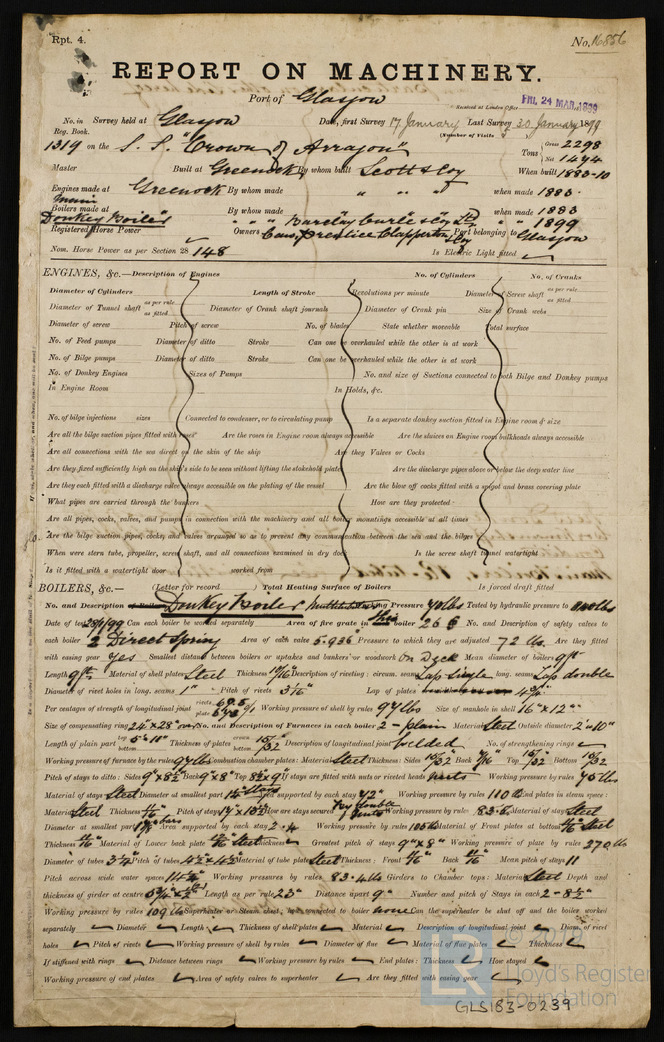 Rpt. 4.
No. 16856
REPORT ON MACHINERY.
Port of Glasgow
Received at London Office FRI. 24 MAR. 1899
No. in Survey held at Glasgow Date, first Survey 17 January Last Survey 30 January 1899
Reg. Book. (Number of Visits
1319 on the S.S. "Crown of Arragon" Tons Gross 2298 Net 1494
Master Built at Greenock By whom built Scott & Coy When built 1883-10
Engines made at Greenock By whom made " " " when made 1883
Main Boilers made at " By whom made " " " when made 1883
Donkey Boiler " " Barclay Curle & Coy Ld " " 1899
Registered Horse Power Owners Prentice Clapperton & Coy Port belonging to Glasgow
Nom. Horse Power as per Section 28 148 Is Electric Light fitted
ENGINES, &c.—Description of Engines No. of Cylinders No. of Cranks
Diameter of Cylinders Length of Stroke Revolutions per minute Diameter of Screw shaft as per rule as fitted
Diameter of Tunnel shaft as per rule as fitted Diameter of Crank shaft journals Diameter of Crank pin Size of Crank webs
Diameter of screw Pitch of screw No. of blades State whether moveable Total surface
No. of Feed pumps Diameter of ditto Stroke Can one be overhauled while the other is at work
No. of Bilge pumps Diameter of ditto Stroke Can one be overhauled while the other is at work
No. of Donkey Engines Sizes of Pumps No. and size of Suctions connected to both Bilge and Donkey pumps
In Engine Room In Holds, &c.
No. of bilge injections sizes Connected to condenser, or to circulating pump Is a separate donkey suction fitted in Engine room & size
Are all the bilge suction pipes fitted with roses Are the roses in Engine room always accessible Are the sluices on Engine room bulkheads always accessible
Are all connections with the sea direct on the skin of the ship Are they Valves or Cocks
Are they fixed sufficiently high on the ship's side to be seen without lifting the stokehold plates Are the discharge pipes above or below the deep water line
Are they each fitted with a discharge valve always accessible on the plating of the vessel Are the blow off cocks fitted with a spigot and brass covering plate
What pipes are carried through the bunkers How are they protected
Are all pipes, cocks, valves, and pumps in connection with the machinery and all boiler mountings accessible at all times
Are the bilge suction pipes, cocks, and valves arranged so as to prevent any communication between the sea and the bilges
When were stern tube, propeller, screw shaft, and all connections examined in dry dock Is the screw shaft tunnel watertight
Is it fitted with a watertight door worked from
BOILERS, &c.— (Letter for record ) Total Heating Surface of Boilers Is forced draft fitted
No. and Description of Boilers Donkey Boiler Working Pressure 70 lbs Tested by hydraulic pressure to 140 lbs
Date of test 28/1/99 Can each boiler be worked separately Area of fire grate in this boiler 26 No. and Description of safety valves to
each boiler 2 Direct Spring Area of each valve 5.936" Pressure to which they are adjusted 72 lbs. Are they fitted
with easing gear Yes Smallest distance between boilers or uptakes and bunkers or woodwork On Deck Mean diameter of boilers 9 ft
Length 9 ft Material of shell plates Steel Thickness 10/16" Description of riveting: circum. seams Lap single long. seams Lap double
Diameter of rivet holes in long. seams 1" Pitch of rivets 3 1/16" Lap of plates
Per centages of strength of longitudinal joint rivets plate Working pressure of shell by rules 97 lbs Size of manhole in shell 16" x 12"
Size of compensating ring 24" x 28" No. and Description of Furnaces in each boiler 2 - plain Material Steel Outside diameter 2'-10"
Length of plain part top bottom Thickness of plates crown bottom 15/32 Description of longitudinal joint Welded No. of strengthening rings
Working pressure of furnace by the rules 97 lbs Combustion chamber plates: Material Steel Thickness: Sides 15/32 Back 7/16" Top 15/32 Bottom 15/32
Pitch of stays to ditto: Sides 9" x 8 1/2 Back 9" x 8" Top If stays are fitted with nuts or riveted heads nuts Working pressure by rules 75 lbs
Material of stays Steel Diameter at smallest part Area supported by each stay 72" Working pressure by rules 110 lbs End plates in steam space:
Material Steel Thickness Pitch of stays How are stays secured by double nuts Working pressure by rules 83.6 Material of stays Steel
Diameter at smallest part Area supported by each stay Working pressure by rules Material of Front plates at bottom Steel
Thickness Material of Lower back plate Steel Thickness Greatest pitch of stays 9" x 8" Working pressure of plate by rules 270 lbs
Diameter of tubes 3 1/4" Pitch of tubes 4 1/2 x 4 1/2 Material of tube plates Steel Thickness: Front Back Mean pitch of stays 11
Pitch across wide water spaces Working pressures by rules 83.4 lbs Girders to Chamber tops: Material Steel Depth and
thickness of girder at centre Length as per rule 23" Distance apart 9" Number and pitch of Stays in each 2 - 8 1/2"
Working pressure by rules 109 lbs Superheater or Steam chest; how connected to boiler none Can the superheater be shut off and the boiler worked
separately Diameter Length Thickness of shell plates Material Description of longitudinal joint Diam. of rivet
holes Pitch of rivets Working pressure of shell by rules Diameter of flue Material of flue plates Thickness
If stiffened with rings Distance between rings Working pressure by rules End plates: Thickness How stayed
Working pressure of end plates Area of safety valves to superheater Are they fitted with easing gear
Lloyd's Register
Foundation
GLS183-0239